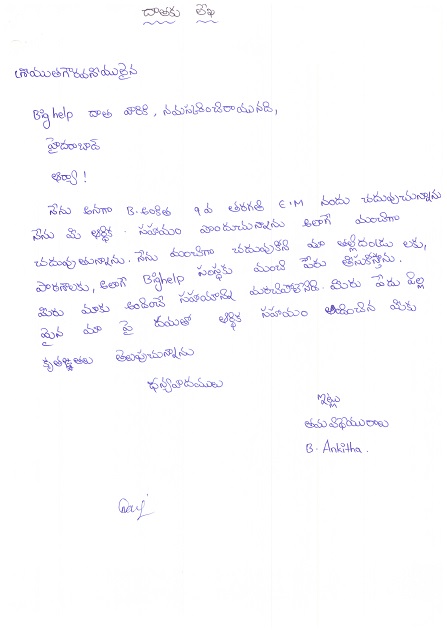 దాతకు లేఖ
గౌరవనీయులైన
Bighelp దాత వారికి, నమస్కరించి రాయునది,
హైదరాబాద్
ఆర్యా!
నేను అనగా B. అంకిత 9వ తరగతి E.M నందు చదువుచున్నాను
నేను మీ ఆర్థిక సహాయం పొందుచున్నాను అలాగే మంచిగా
చదువుతున్నాను. నేను మంచిగా చదువుకొని మా తల్లిదండ్రులకు,
పాఠశాలకు, అలాగే Bighelp సంస్థకు మంచి పేరు తీసుకొస్తాను.
మీరు మాకు అందించే సహాయాన్ని మరచిపోలేనిది. మీరు పేద పిల్ల
మైన మా పై దయతో ఆర్థిక సహాయం అందించిన మీకు
కృతజ్ఞతలు తెలుపుచున్నాను
ధన్యవాదములు
ఇట్లు
తమ విధేయురాలు
B. Ankitha.